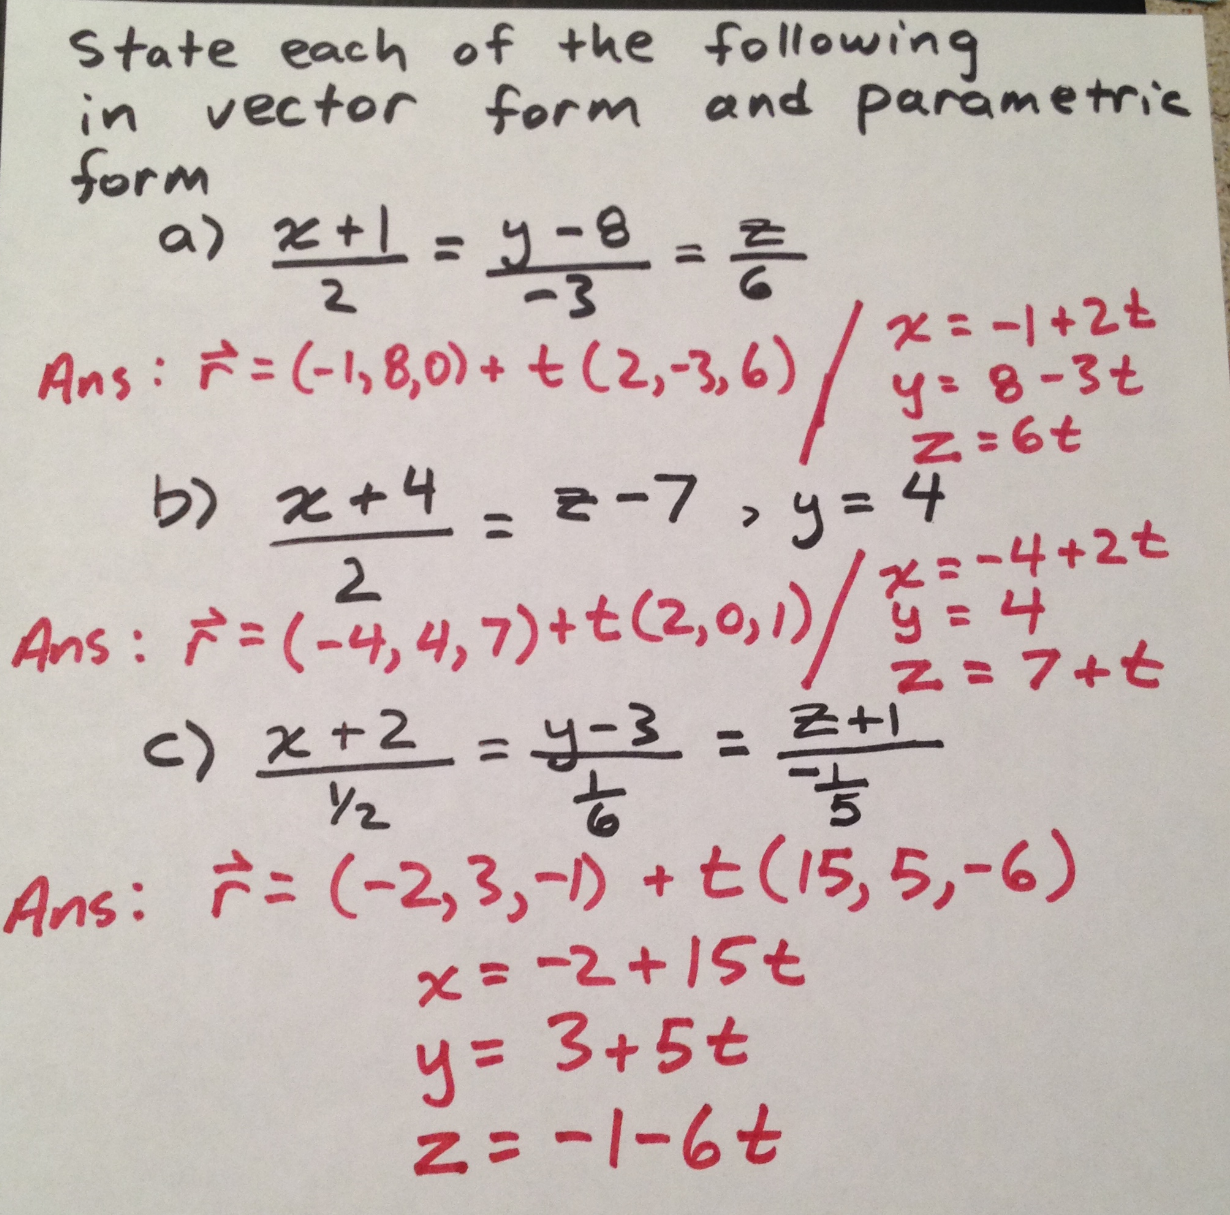 State each of the following
in vector form and parametric
form
a) \frac{x+1}{2} = \frac{y-8}{-3} = \frac{z}{6}
Ans: \vec{r} = (-1,8,0) + t(2,-3,6) / x = -1+2t
y = 8-3t
z = 6t
b) \frac{x+4}{2} = z-7, y = 4
Ans: \vec{r} = (-4,4,7)+t(2,0,1) / x = -4+2t
y = 4
z = 7+t
c) \frac{x+2}{1/2} = \frac{y-3}{\frac{1}{6}} = \frac{z+1}{-\frac{1}{5}}
Ans: \vec{r} = (-2,3,-1) + t(15,5,-6)
x = -2+15t
y = 3+5t
z = -1-6t